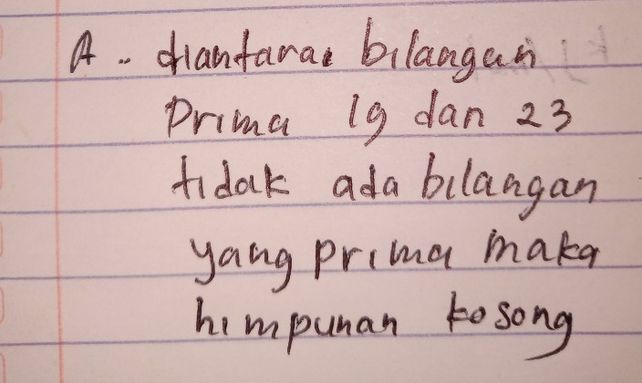 A. diantarai bilangan
Prima 19 dan 23
tidak ada bilangan
yang prima maka
himpunan kosong